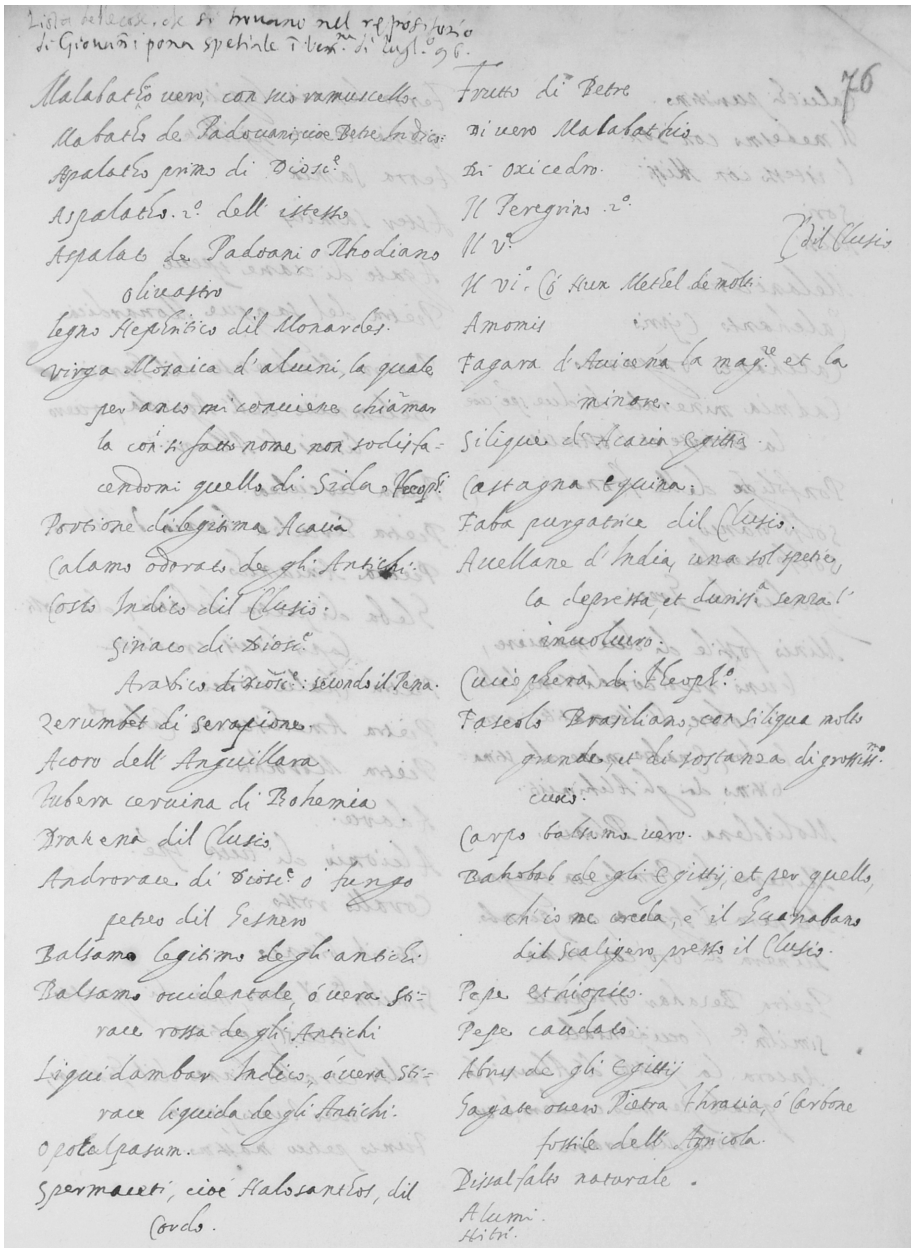 Lista delle cose, che si trovano nel repositorio
di Giovañi pona spetiale ĩ Ver.na di lugl.o 96.
76
Malabathõ vero, con suo ramuscello
Mabathõ de Padouani, cioe Betre Indico:
Aspalatho primo di Diosc.e
Aspalatho .2.o dell' istesso
Aspalato de Padoani o Rhodiano
olivastro
legno Nephritico dil Monardes.
virga Mosaica d'alcuni, la quale
per anco mi conviene chiãmar
la cõ si fatto nome non sodisfa-
cendomi quello di Sida Theoph.i
Portione di legitima Acacia
Calamo odorato de gli Antichi.
Costo Indico dil Clusio:
Siriaco di Diosc.e
Arabico di Diosc.e: secondo il Pena.
Zerumbet di serapione.
Acoro dell' Anguillara
Tubera cervina di Bohemia
Drakena dil Clusio
Androsace di Diosc.e o' fungo
petreo dil Gesnero
Balsamo legitimo de gli antichi
Balsamo occidentale, ó vera sti-
race rossa de gli Antichi
Liquidambar Indico, ó vera sti-
race liquida de gli Antichi.
Opocalpasum.
Spermaceti, cioé Halosanthos, dil
Cordo.
Frutto di Betre
Di vero Malabathro
Di oxicedro.
Il Peregrino .2.o
Il v.o
dil Clusio
Il vi.o Nux Methel de molti
Amomis
Fagara d'Avicēna la mag.re et la
minore.
Silique d'Acacia Egittia.
Castagna Equina.
Faba purgatrice dil Clusio.
Avellane d'India, una sol spetie,
la depressa, et duriss.a senza l'
involucro.
Cuciophera di Theoph.o
Faseolo Brasiliano, con siliqua molto
grande, et di sostanza di grossiss.mo
cuoio.
Carpo balsamo vero.
Bahobab de gli Egittij, et per quello,
ch'io ne creda, é il Guanabano
dil Scaligero, presso il Clusio.
Pepe ethiopico.
Pepe caudato
Abrus de gli Egittij
Gagate overo Pietra thracia, ó Carbone
fossile dell' Agricola.
Pissalfalto naturale.
Alumi.
Nitri.